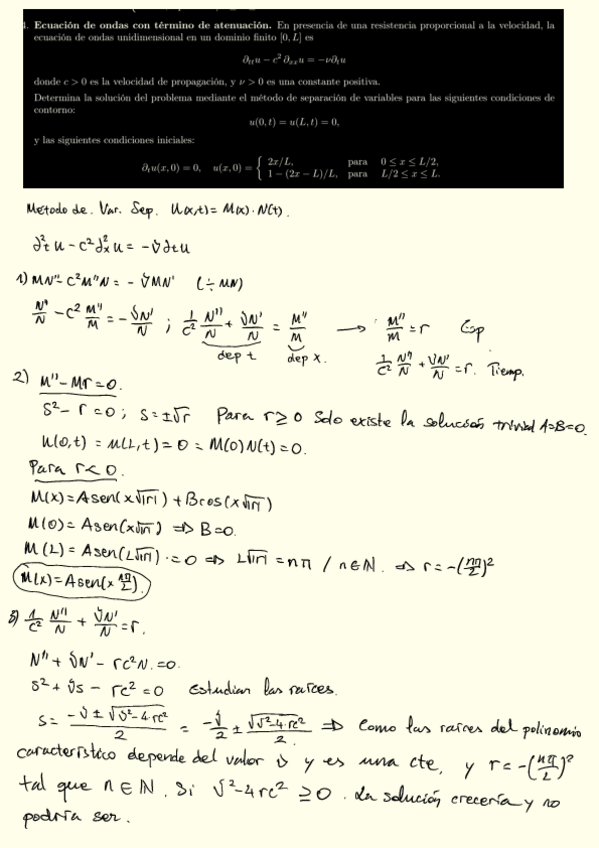 1. Ecuación de ondas con término de atenuación. En presencia de una resistencia proporcional a la velocidad, la
ecuación de ondas unidimensional en un dominio finito [0, L] es
∂ttu − c² ∂xxu = −ν∂tu
donde c > 0 es la velocidad de propagación, y ν > 0 es una constante positiva.
Determina la solución del problema mediante el método de separación de variables para las siguientes condiciones de
contorno:
u(0, t) = u(L, t) = 0,
y las siguientes condiciones iniciales:
∂tu(x, 0) = 0, u(x, 0) = { 2x/L, para 0 ≤ x ≤ L/2,
1 − (2x − L)/L, para L/2 ≤ x ≤ L.
Método de. Var. Sep. U(x,t) = M(x)·N(t).
∂²t u − c²∂²x u = −ν∂t u
1) MN'' − C²M''N = −νMN' (÷MN)
N''/N − C² M''/M = −νN'/N ; 1/C² N''/N + νN'/N = M''/M → M''/M = r Esp
dep t dep x. 1/C² N''/N + νN'/N = r. Tiemp.
2) M'' − Mr = 0.
S² − r = 0 ; S = ±√r Para r ≥ 0 Solo existe la solución trivial A=B=0.
U(0,t) = u(L,t) = 0 = M(0)N(t) = 0.
Para r < 0.
M(x) = A sen(x√|r|) + B cos(x√|r|)
M(0) = A sen(x√|r|) ⇒ B = 0.
M(L) = A sen(L√|r|) · = 0 ⇒ L√|r| = nπ / n∈ℕ. ⇒ r = −(nπ/L)²
M(x) = A sen(x nπ/L).
3) 1/C² N''/N + νN'/N = r.
N'' + νN' − rc²N. = 0.
S² + νs − rc² = 0 Estudian las raíces.
S = −ν ± √ν²−4·rc² / 2 = −ν/2 ± √ν²−4·rc² / 2. ⇒ Como las raíces del polinomio
característico depende del valor ν y es una cte, y r = −(nπ/L)²
tal que n∈ℕ. Si ν²−4rc² ≥ 0. La solución crecería y no
podría ser.